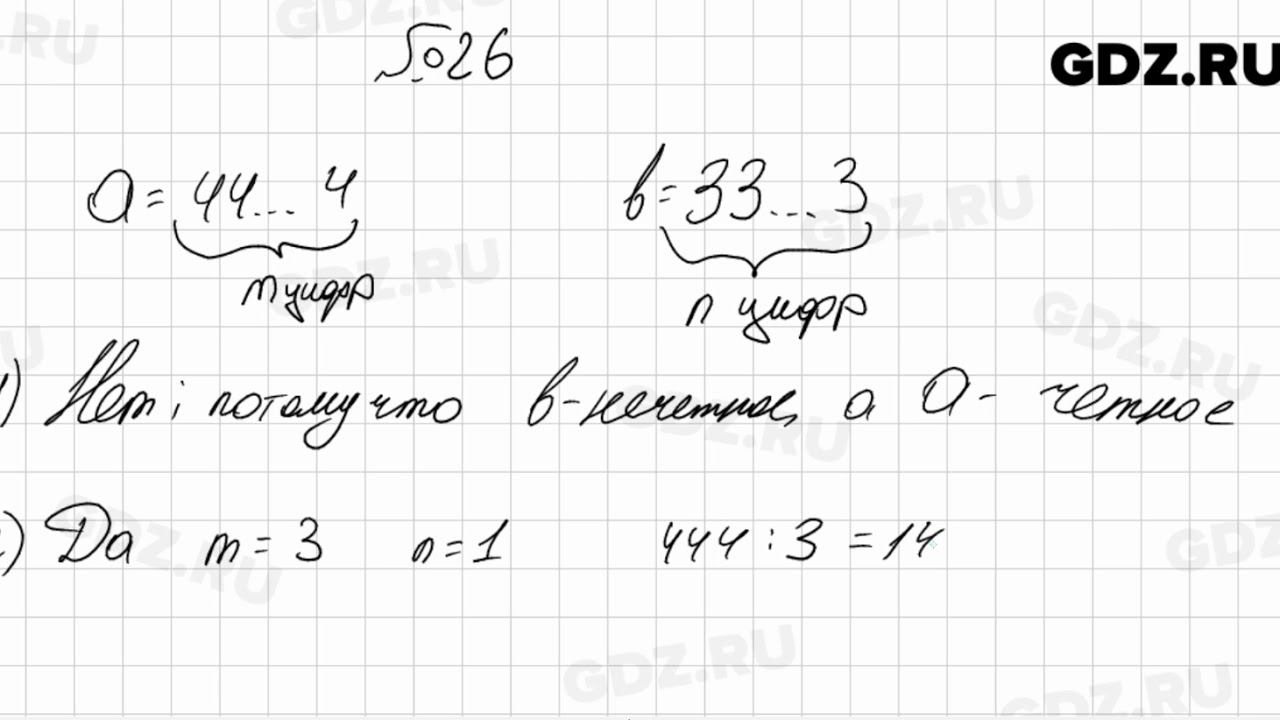 №26
GDZ.RU
a = 44... 4
m цифр
в = 33... 3
n цифр
1) Нет; потому что в - нечетное, а a - четное
2) Да m = 3 n = 1 444 : 3 = 14